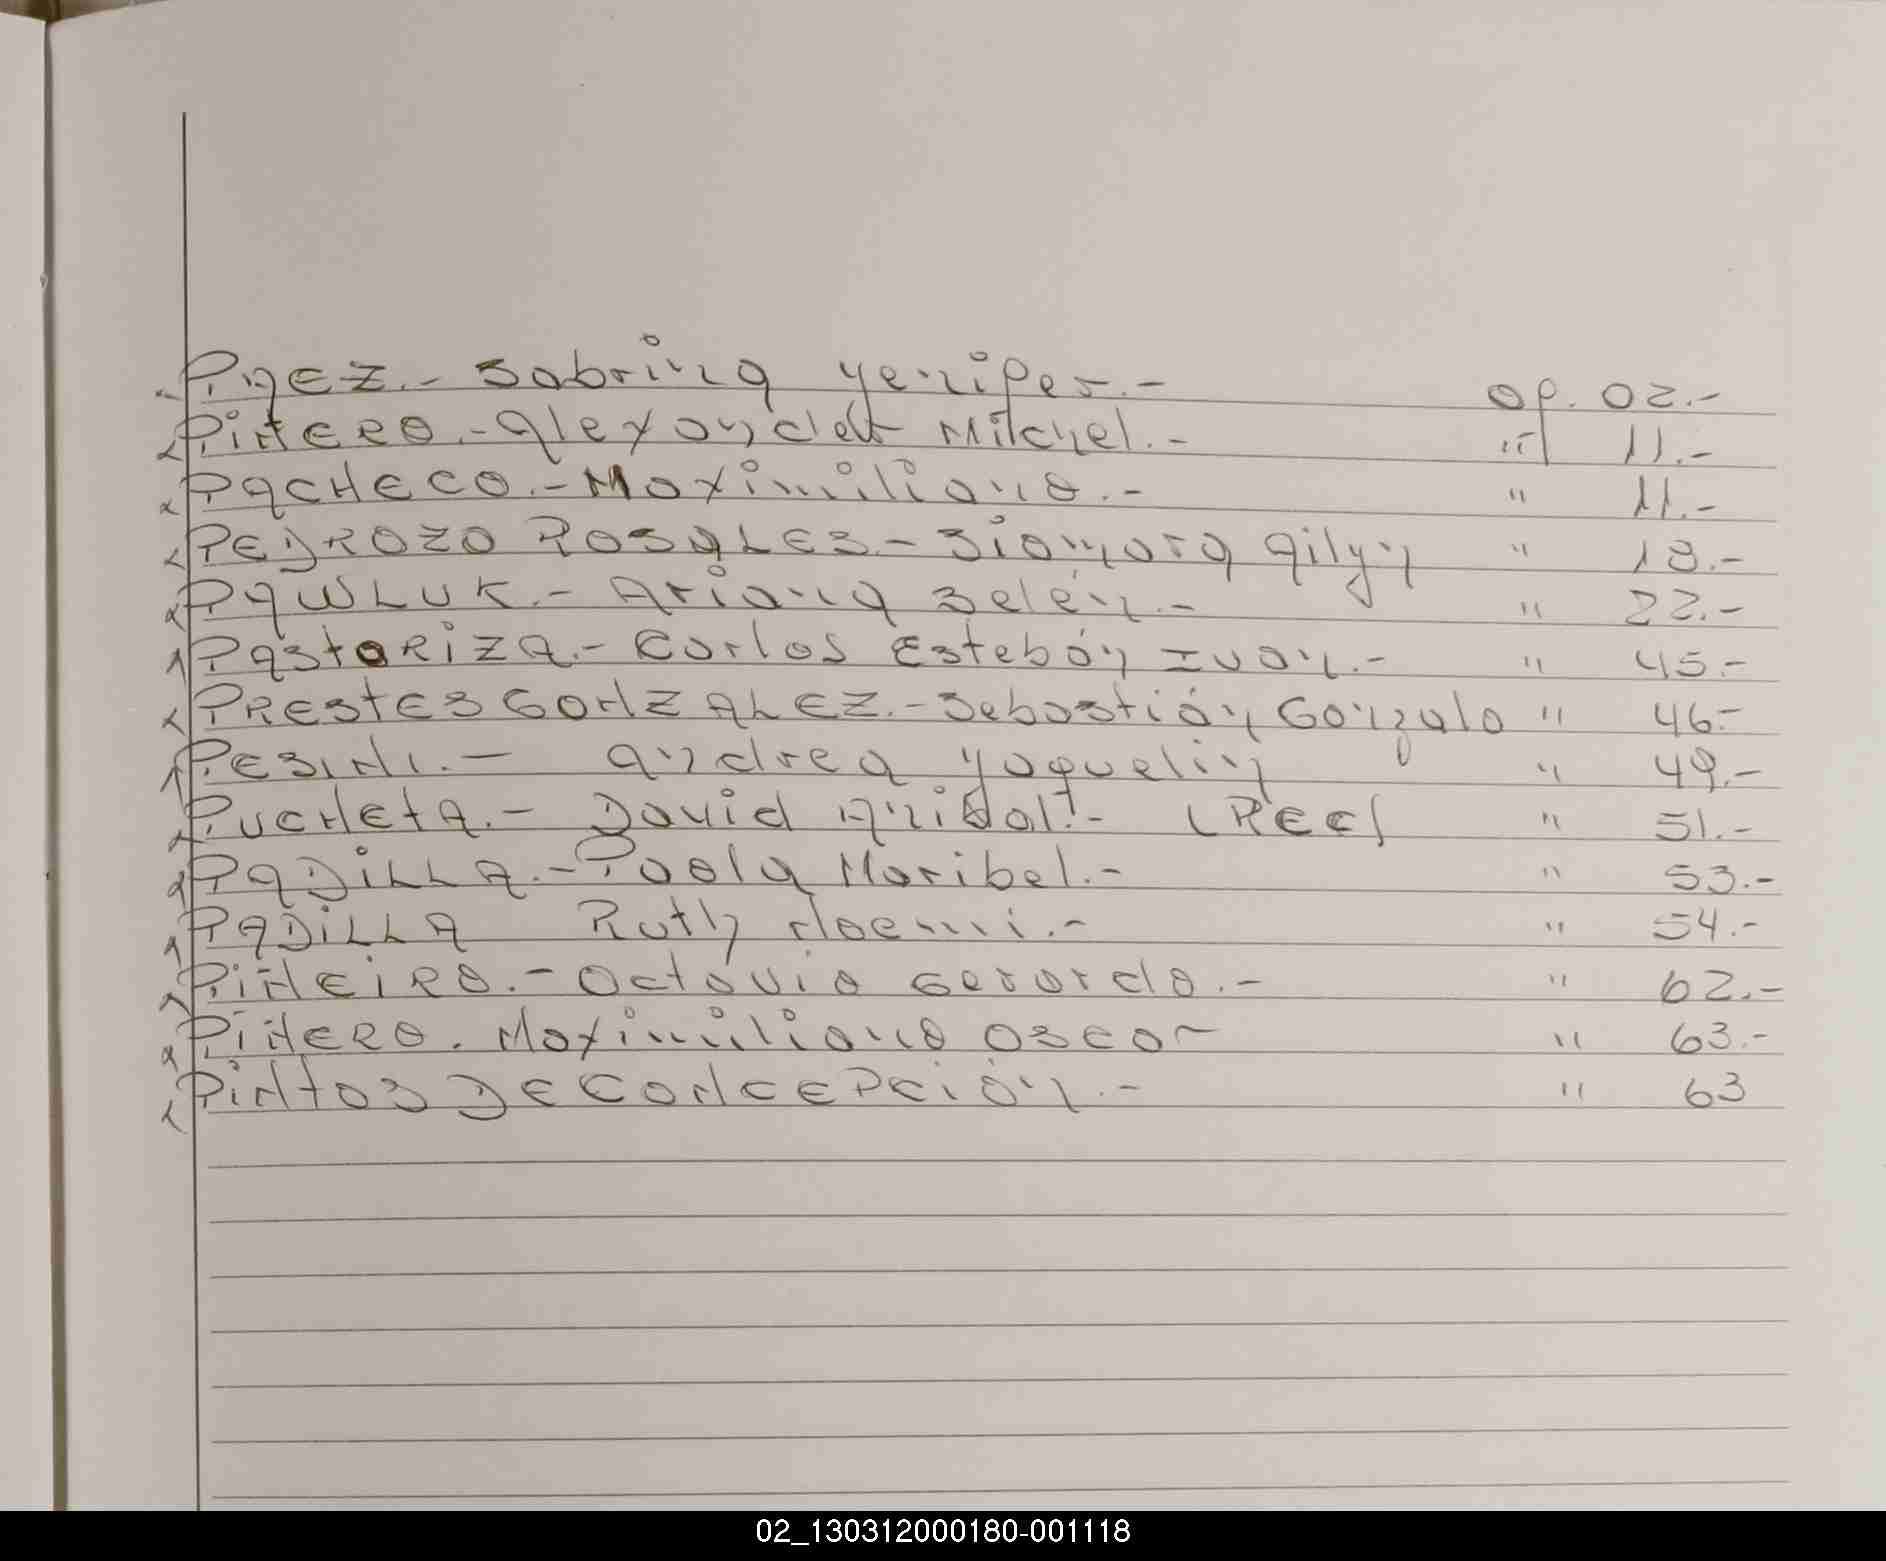 PAEZ.- Sabrina Yenifer.- of. 02.-
PIÑERO.- Alexander Mitchel.- " 11.-
PACHECO.- Maximiliano.- " 11.-
PEDROZO ROSALES.- Siomara Ailyn " 18.-
PAWLUK.- Ariana Belén.- " 22.-
PAstoRiZA.- Carlos Esteban Ivan.- " 45.-
PREstES GONZALEZ.- Sebastián Gonzalo " 46.-
PESINI.- Andrea Yaquelin " 49.-
PucHEtA.- David Anibal.- (REC) " 51.-
PADiLLA.- Paola Maribel.- " 53.-
PADiLLA Ruth Noemi.- " 54.-
PiÑEIRO.- Octavio Gerardo.- " 62.-
PiÑERO. Maximiliano Oscar " 63.-
PiNtOS DE CONCEPCiÓN.- " 63
02_130312000180-001118